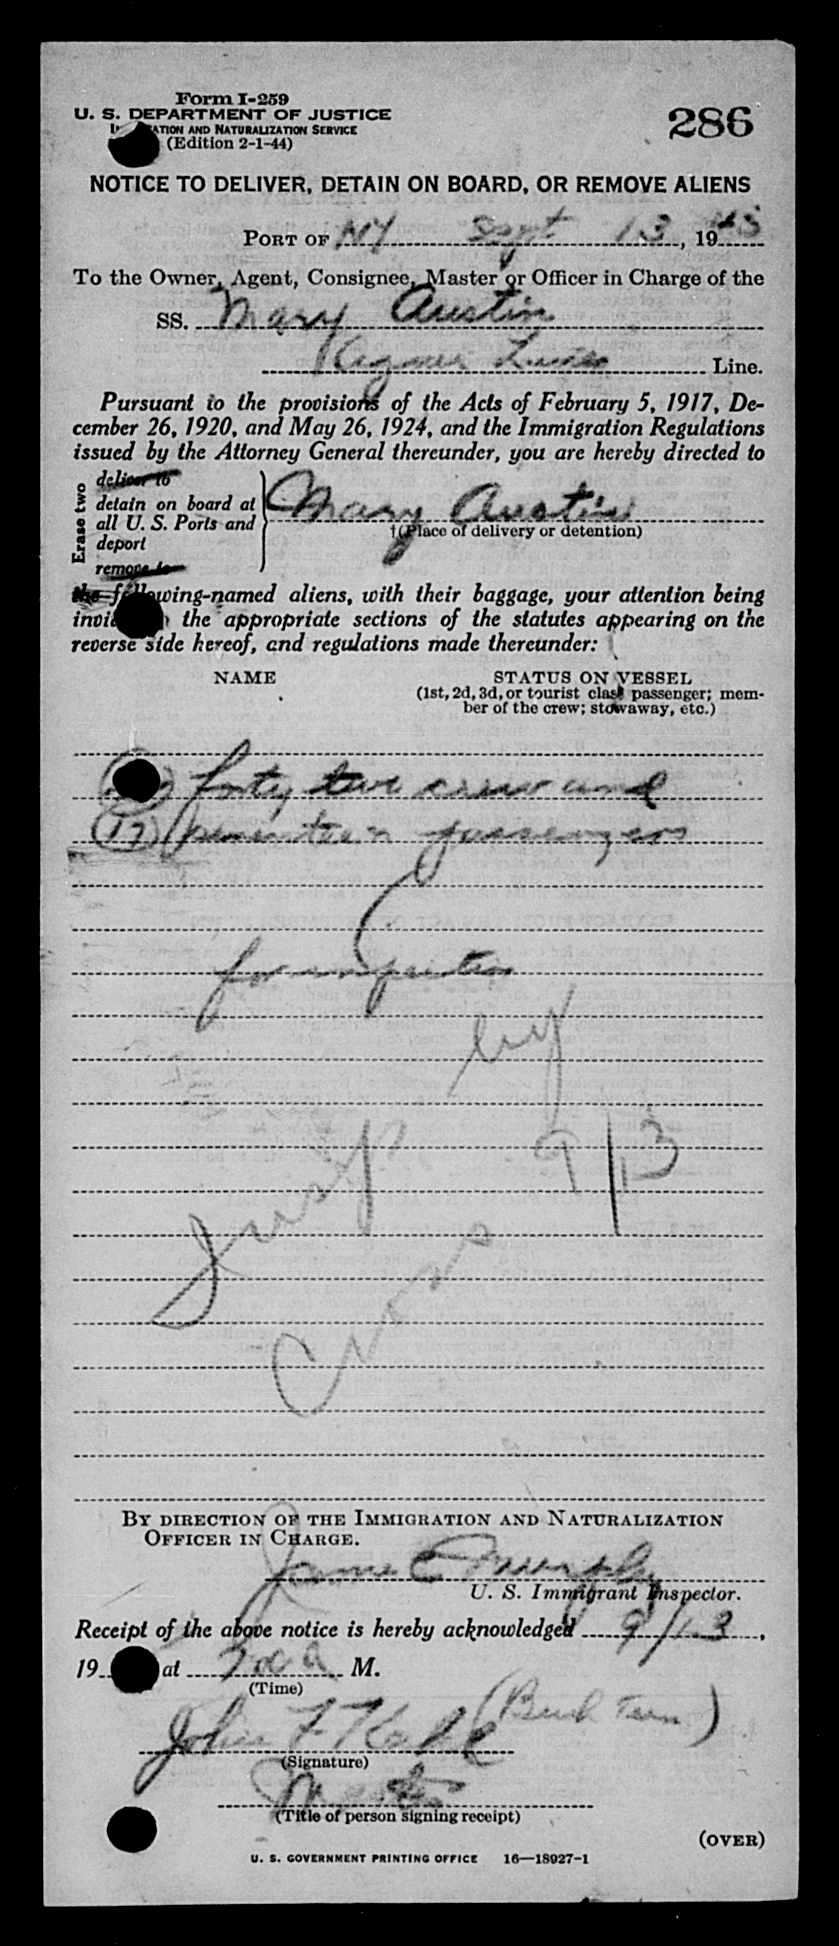 Form I-259
U. S. DEPARTMENT OF JUSTICE
286
ATION AND NATURALIZATION SERVICE
(Edition 2-1-44)
NOTICE TO DELIVER, DETAIN ON BOARD, OR REMOVE ALIENS
PORT OF NY Sept 13, 1945
To the Owner, Agent, Consignee, Master or Officer in Charge of the
SS. Mary Austin
Lines Line.
Pursuant to the provisions of the Acts of February 5, 1917, De-
cember 26, 1920, and May 26, 1924, and the Immigration Regulations
issued by the Attorney General thereunder, you are hereby directed to
Erase two
deliver to
detain on board at
all U. S. Ports and
deport
remove to
Mary Austin
†(Place of delivery or detention)
the following-named aliens, with their baggage, your attention being
the appropriate sections of the statutes appearing on the
reverse side hereof, and regulations made thereunder:
NAME STATUS ON VESSEL
(1st, 2d, 3d, or tourist class passenger; mem-
ber of the crew; stowaway, etc.)
forty two crew and
(17) seventeen passengers
for inspection
by
9/13
Insp
Cross
BY DIRECTION OF THE IMMIGRATION AND NATURALIZATION
OFFICER IN CHARGE.
James E Murphy
U. S. Immigrant Inspector.
Receipt of the above notice is hereby acknowledged 9/13,
19 at M.
(Time)
John F
(Signature)
Master
(Title of person signing receipt)
(OVER)
U. S. GOVERNMENT PRINTING OFFICE 16—18927-1